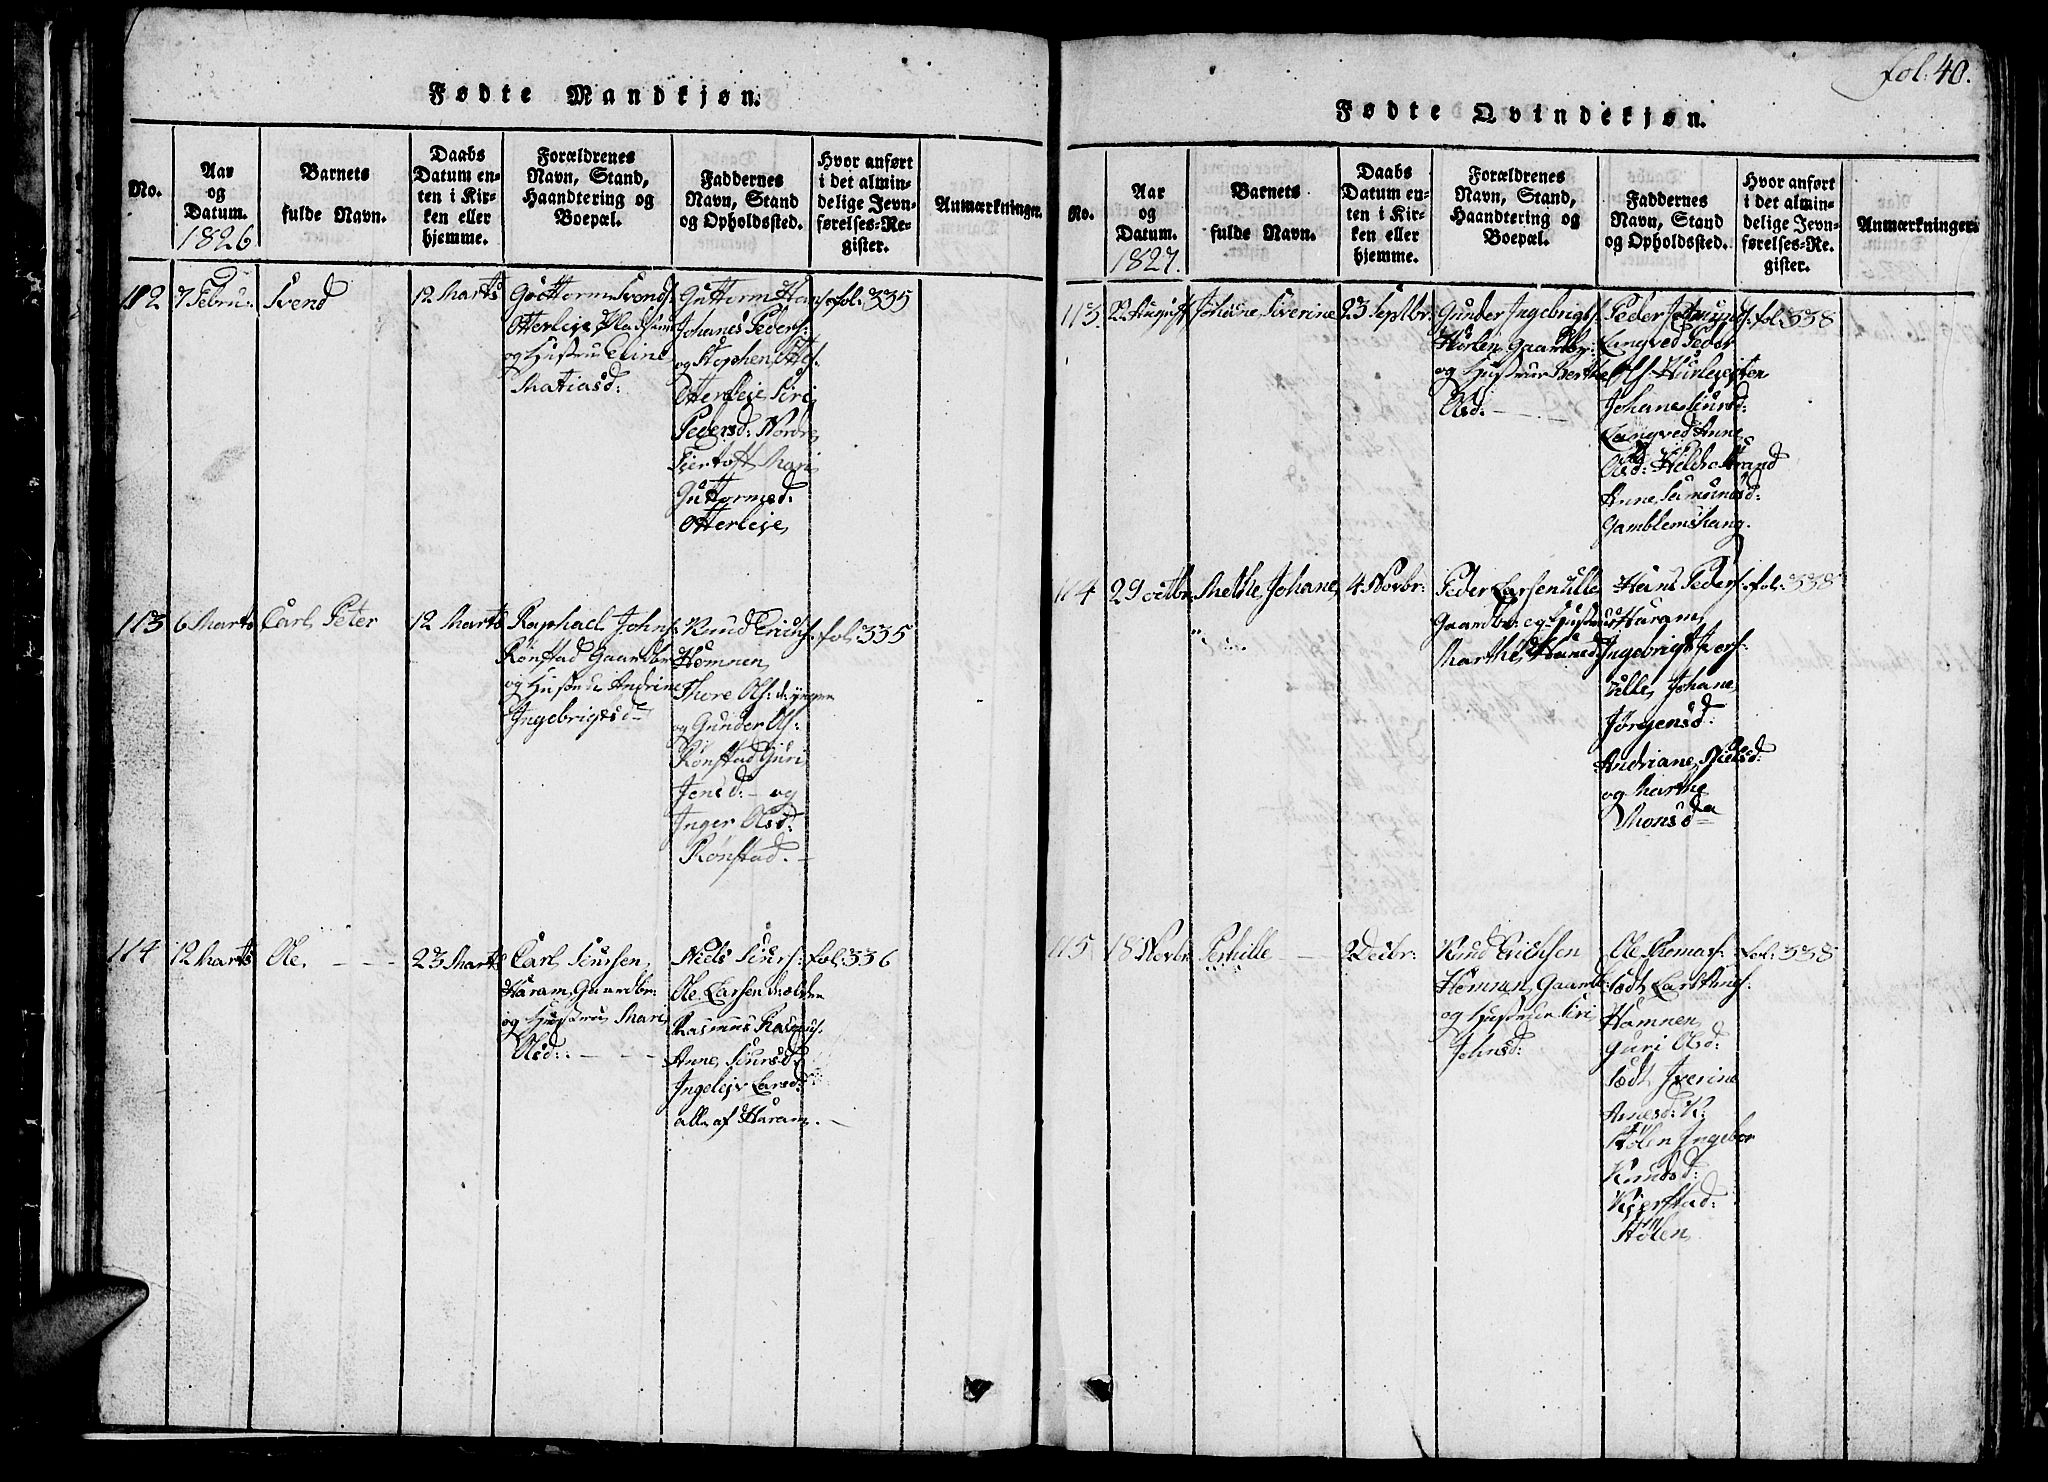 fol: 40.
Fødte Mandkjøn.
No.
Aar
og
Datum.
1826
Barnets
fulde Navn.
Daabs
Datum en-
ten i Kir-
ken eller
hjemme.
Forældrenes
Navn, Stand,
Haandtering og
Boepæl.
Faddernes
Navn, Stand
og Opholdssted.
Hvor anført
i det almin-
delige Jevn-
førelses-Re-
gister.
Anmærkninger.
112
7 Febru:
Svend
12 Marts
Guttorm Svends:
Otterleje Pladsm
og Hustru Eline
Matiasd:
Guttorm Hans:
Johanes Peders:
og Stephen
Otterleje Siri
Pedersd: Nordre
Fiertoft Mari
Guttormsd:
Otterleje
fol: 335
113
6 Marts
Carl Peter
12 Marts
Raphael Johns:
Rønstad Gaardbr
og Hustrue Andrine
Ingebrigtsd
Knud Erichs:
Hamnen
Thore Ols: d: yngre
og Gunder Ols:
Rønstad Guri
Jensd: - og
Inger Olsd:
Rønstad. -
fol: 335
114
12 Marts
Ole. - - -
23 Marts
Carl Sivrsen
Haram Gaardbr:
og Hustru Mari
Olsd: - - -
Niels Sivrs:
Ole Larsen d: ældre
Rasmus Rasmus:
Anne Sivrsd:
Ingelejv Larsd:
alle af Haram. -
fol: 336
Fødte Qvindekjøn.
No.
Aar
og
Datum.
1827.
Barnets
fulde Navn.
Daabs
Datum en-
ten i Kir-
ken eller
hjemme.
Forældrenes
Navn, Stand,
Haandtering og
Boepæl.
Faddernes
Navn, Stand
og Opholdssted.
Hvor anført
i det almin-
delige Jevn-
førelses-Re-
gister.
Anmærkninger
113.
August
Johane Siverine
23 Septbr:
Gunder Ingebrigts:
Gaardbr:
og Hustrue Berthe
Olsd: - - -
Peder
Langved Peder
Ols:
Johane Sivrsd:
Langved Anne
Olsd: Hildrestrand
Anne
Gamblemshaug.
fol: 338
114
29 octbr:
Methe Johane
4 Novbr:
Peder Larsen Ulle
Gaardbr: og Hustrue
Marthe
Hans Peders:
Haram
Ingebrigt
Ulle, Johane
Jørgensd:
Andriane Nielsd:
og Marthe
Monsd
fol: 338
115
18 Novbr:
Pernille -
2 Decbr:
Knud Erichsen
Hamnen Gaardb:
og Hustrue Siri
Johnsd:
Ole Thomas:
Carl Knuds:
Hamnen
Guri Olsd:
Iverine
K:
Stølen Ingebor
Knudsd:
Kjerstad:
Stølen
fol: 338